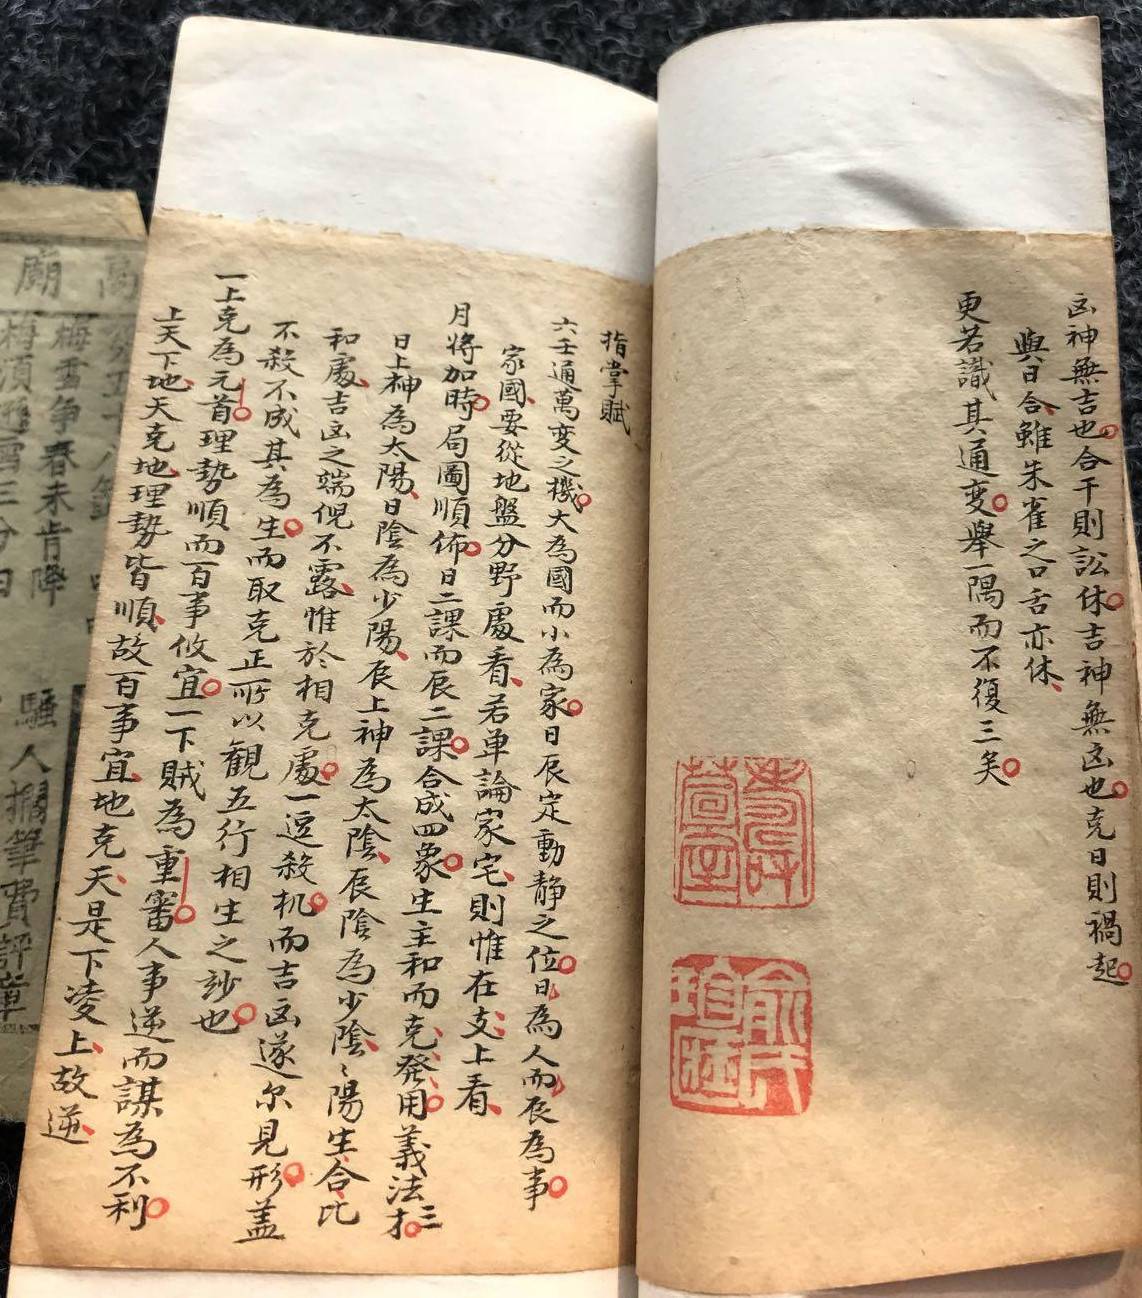 凶神無吉也合干則訟休吉神無凶也克日則禍起
與日合雖朱雀之口舌亦休
更若識其通變舉一隅而不復三矣
俞氏珍藏
指掌賦
六壬通萬變之機大為國而小為家日辰定動靜之位日為人而辰為事
家國要從地盤分野處看若单論家宅則惟在支上看
月將加時局圖順佈日二課而辰二課合成四象生主和而克發用義法三才
日上神為太陽日陰為少陽辰上神為太陰辰陰為少陰〻陽生合比
和處吉凶之端倪不露惟於相克處一逗殺机而吉凶遂尔見形蓋
不殺不成其為生而取克正所以觀五行相生之玅也
一上克為元首理勢順而百事攸宜一下賊為重審人事逆而謀為不利
上天下地天克地理勢皆順故百事宜地克天是下凌上故逆
高
梅雪争春未肯降 騷人擱筆費評章
廟
梅須遜雪三分白